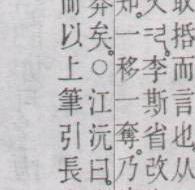 取抵而言也。从
李斯省改
知。一移一奪。乃
矣。○江沅曰。
而以上筆引長